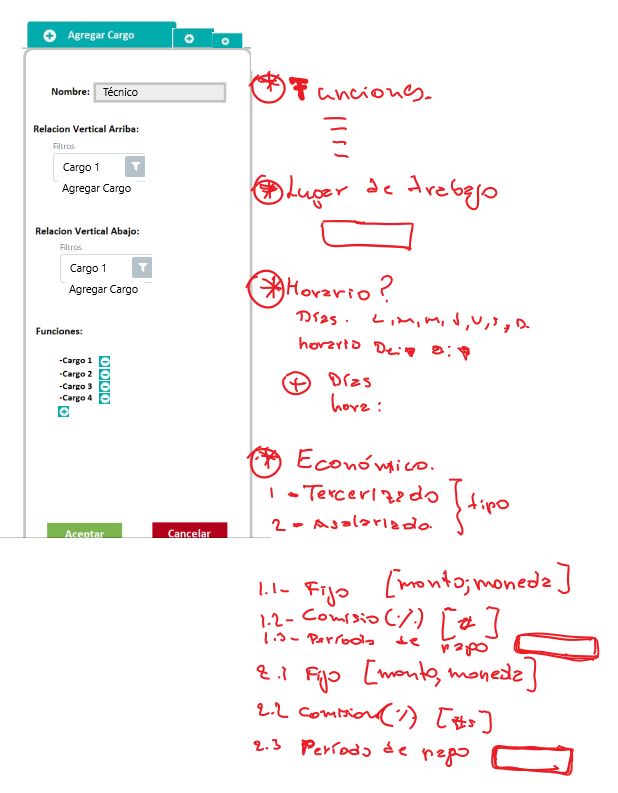 Agregar Cargo
Nombre: Técnico
Relacion Vertical Arriba:
Filtros
Cargo 1
Agregar Cargo
Relacion Vertical Abajo:
Filtros
Cargo 1
Agregar Cargo
Funciones:
-Cargo 1
-Cargo 2
-Cargo 3
-Cargo 4
Aceptar
Cancelar
* Funciones.
* Lugar de trabajo
* Horario?
Días. L, M, M, J, V, S, D.
horario De: a:
+ Días
hora:
* Económico.
1 - Tercerizado
2 - Asalariado.
} tipo
1.1- Fijo [monto; moneda]
1.2- Comisio (%) [#]
1.3- Período de pago
2.1 Fijo [monto, moneda]
2.2 Comision (%) [#s]
2.3 Período de pago